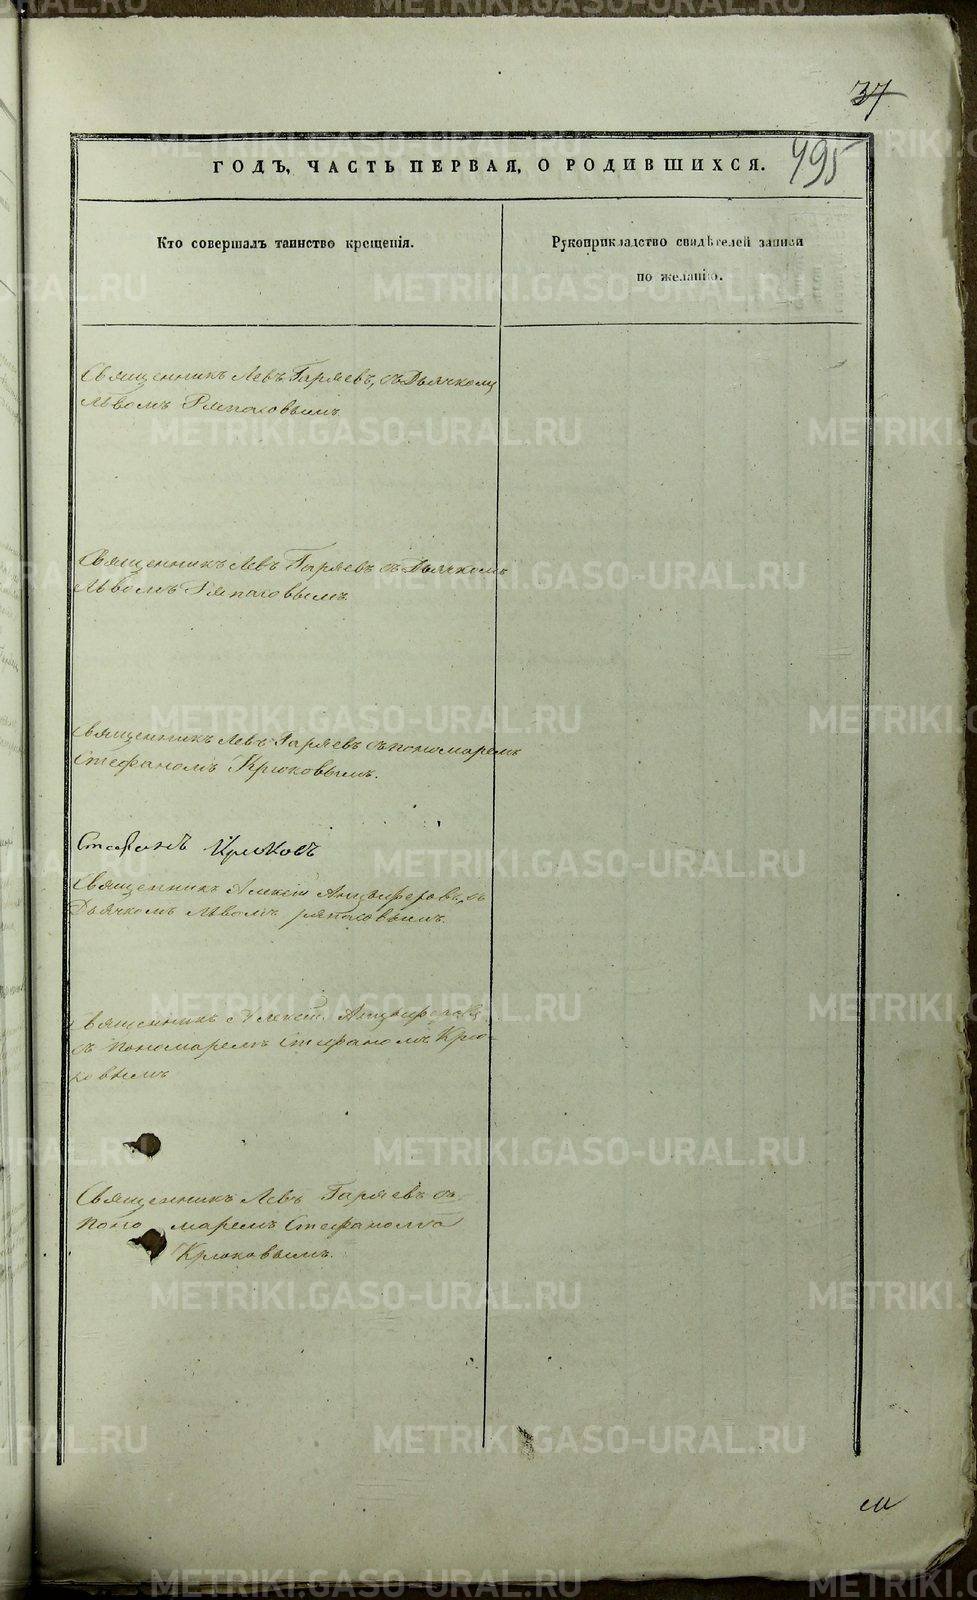 37
495
ГОДЪ, ЧАСТЬ ПЕРВАЯ, О РОДИВШИХСЯ.
Кто совершалъ таинство крещенія.
Рукоприкладство свидѣтелей записи
по желанію.
Священникъ Левъ Гаряевъ, съ Дьячкомъ
Львомъ Ряпасовымъ
Священникъ Левъ Гаряевъ съ Дьячкомъ
Львомъ Ряпасовымъ
Священникъ Левъ Гаряевъ съ пономаремъ
Стефаномъ Крюковымъ.
Стефанъ Крюковъ
Священникъ Алексій Анцыферовъ, съ
Дьячкомъ Львомъ Ряпасовымъ.
Священникъ Алексій Анцыферовъ
съ пономаремъ Стефаномъ Крю-
ковымъ
Священникъ Левъ Гаряевъ съ
поно маремъ Стефаномъ
Крюковымъ.
METRIKI.GASO-URAL.RU